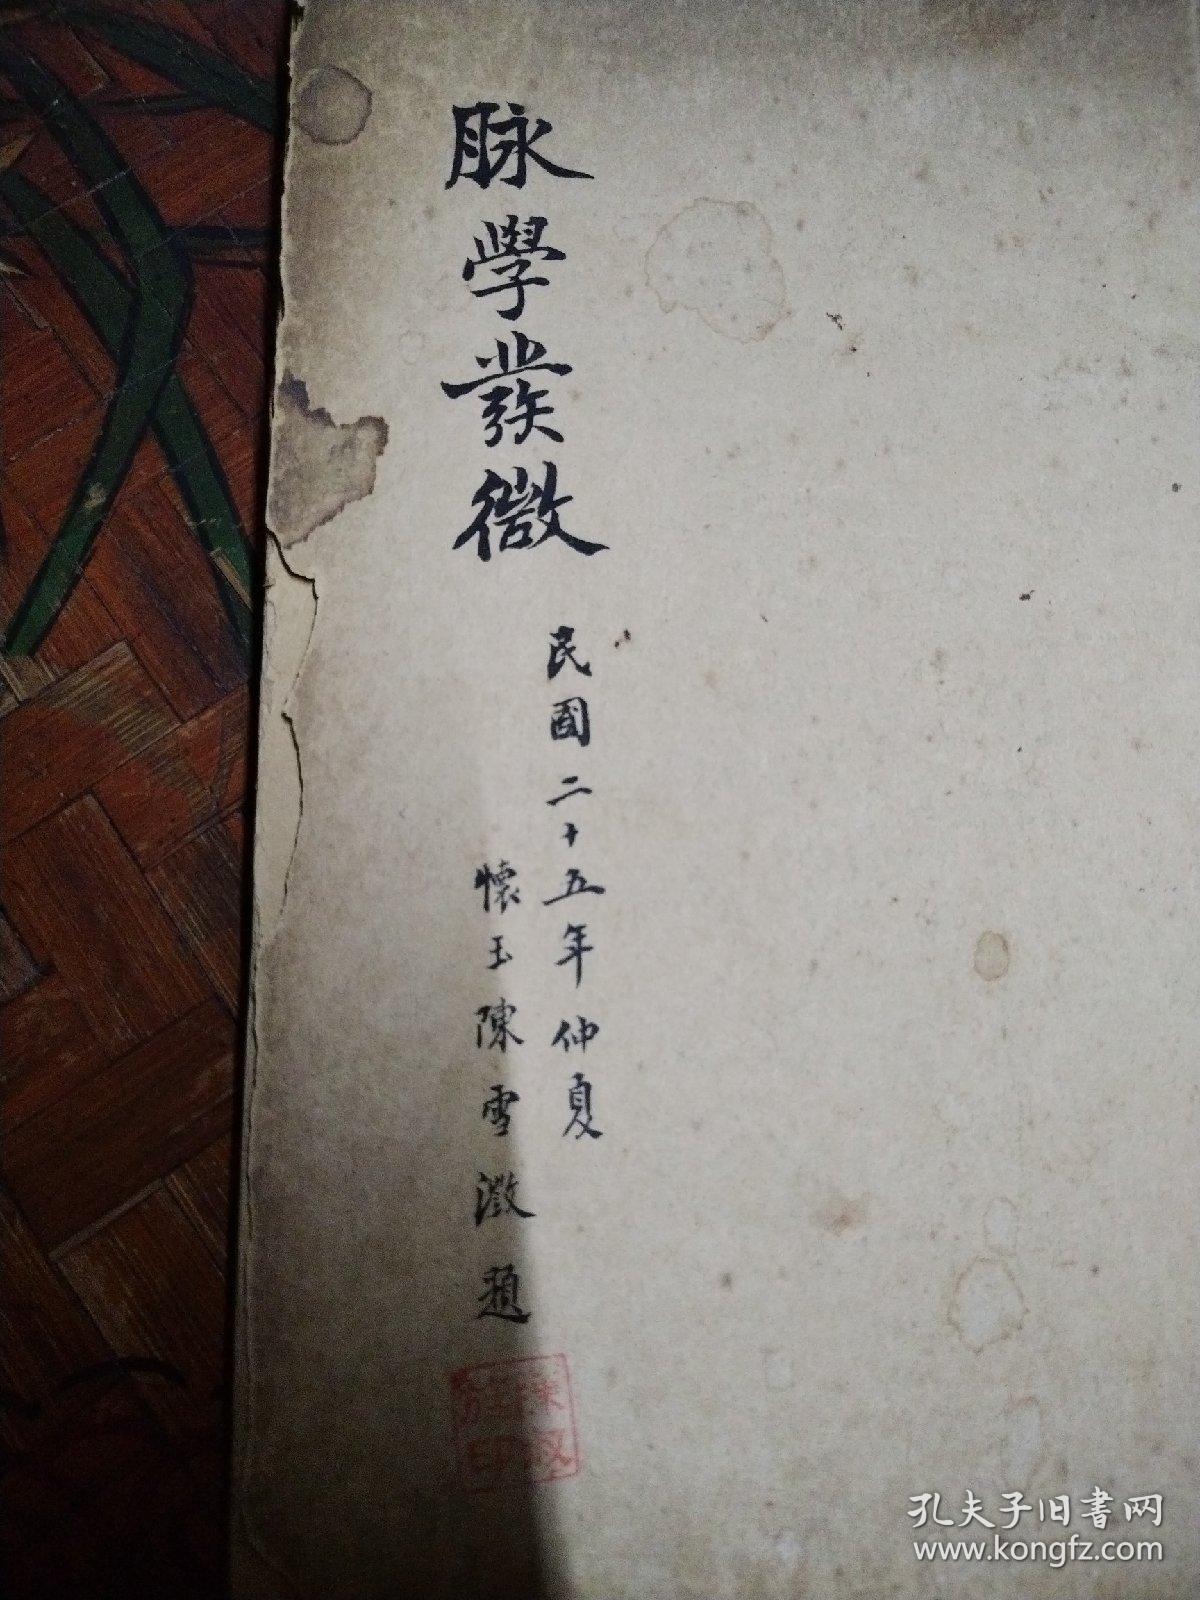 脉學發微
民國二十五年仲夏
懷玉陳雪澂題
孔夫子旧書网
www.kongfz.com